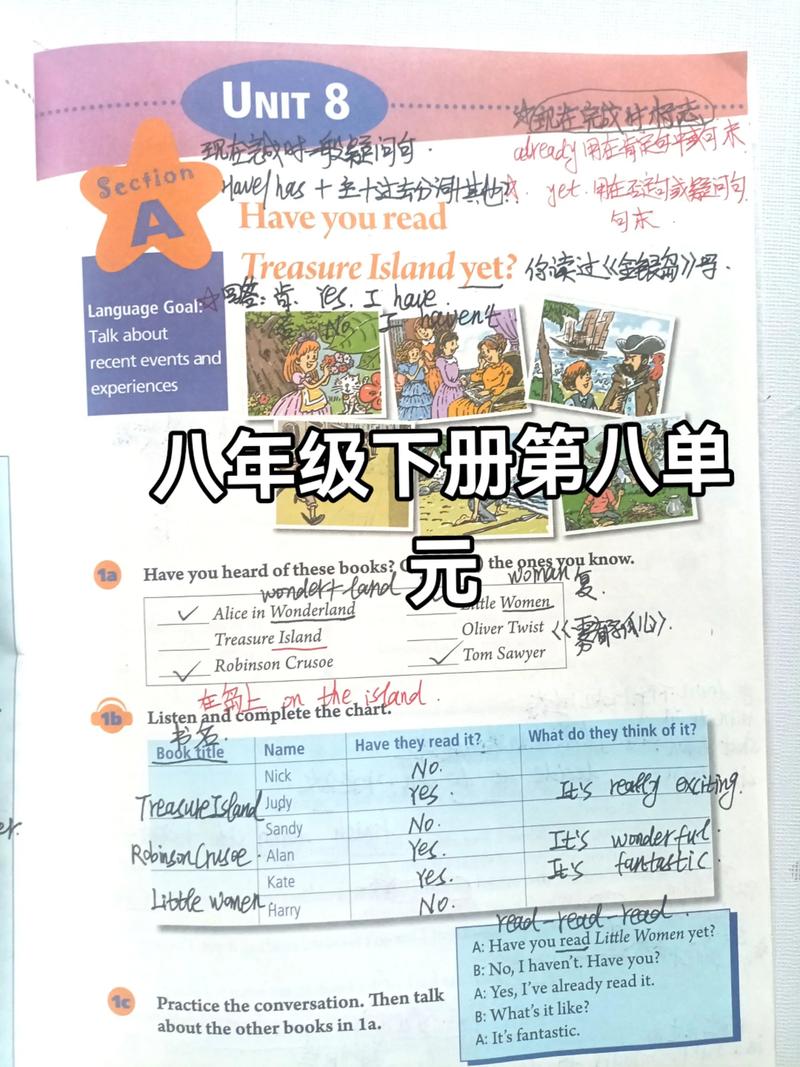 UNIT 8
☆现在完成时标志
现在完成时一般疑问句.
already 用在肯定句中或句末
Section
A
Have/has + 主+过去分词+其他?
yet. 用在否定句或疑问句
句末.
Have you read
Treasure Island yet? 你读过《金银岛》吗.
Language Goal:
Talk about
recent events and
experiences
☆回答: 肯. Yes. I have.
否 No I haven't
八年级下册第八单
元
1a Have you heard of these books? the ones you know.
wonder+land
woman复.
✓ Alice in Wonderland
Little Women
Treasure Island
Oliver Twist 《雾都孤儿》.
✓ Robinson Crusoe
✓ Tom Sawyer
在岛上 on the island.
1b Listen and complete the chart.
书名.
Book title Name Have they read it? What do they think of it?
Nick No.
Treasure Island Judy Yes. It's really exciting.
Sandy No.
Robinson Crusoe. Alan Yes. It's wonderful.
Kate Yes. It's fantastic.
Little women Harry No.
read-read-read.
A: Have you read Little Women yet?
B: No, I haven't. Have you?
A: Yes, I've already read it.
B: What's it like?
A: It's fantastic.
1c Practice the conversation. Then talk
about the other books in 1a.